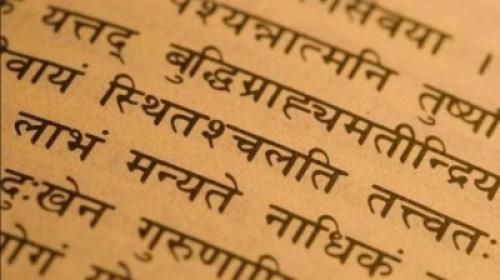 सेवया ।
श्यन्नात्मनि तुष्य
यत्तद् बुद्धिग्राह्यमतीन्द्रिय
वायं स्थितश्चलति तत्त्वतः
लाभं मन्यते नाधिकं
दुःखेन गुरुणापि
योगं